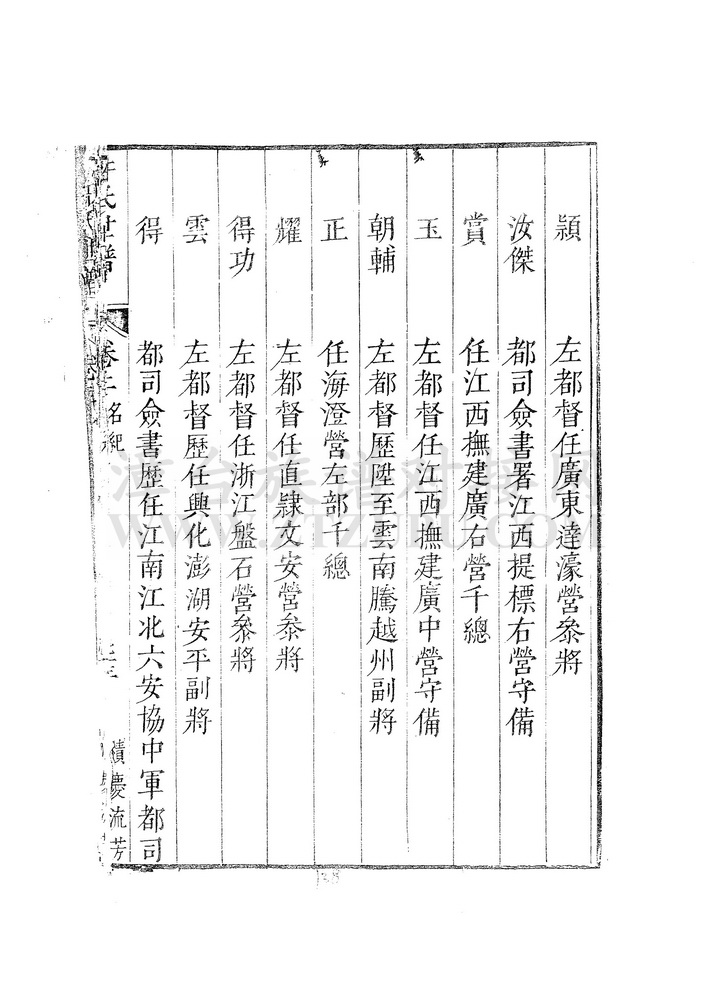 頴　左都督任廣東達濠營叅將
汝傑　都司僉書署江西提標右營守備
賞　任江西撫建廣右營千總
玉　左都督任江西撫建廣中營守備
朝輔　左都督歷陞至雲南騰越州副將
正　任海澄營左部千總
耀　左都督任直隸文安營叅將
得功　左都督任浙江盤石營叅將
雲　左都督歷任興化澎湖安平副將
得　都司僉書歷任江南江北六安協中軍都司
氏世譜　卷　名紀　慶流芳
www.